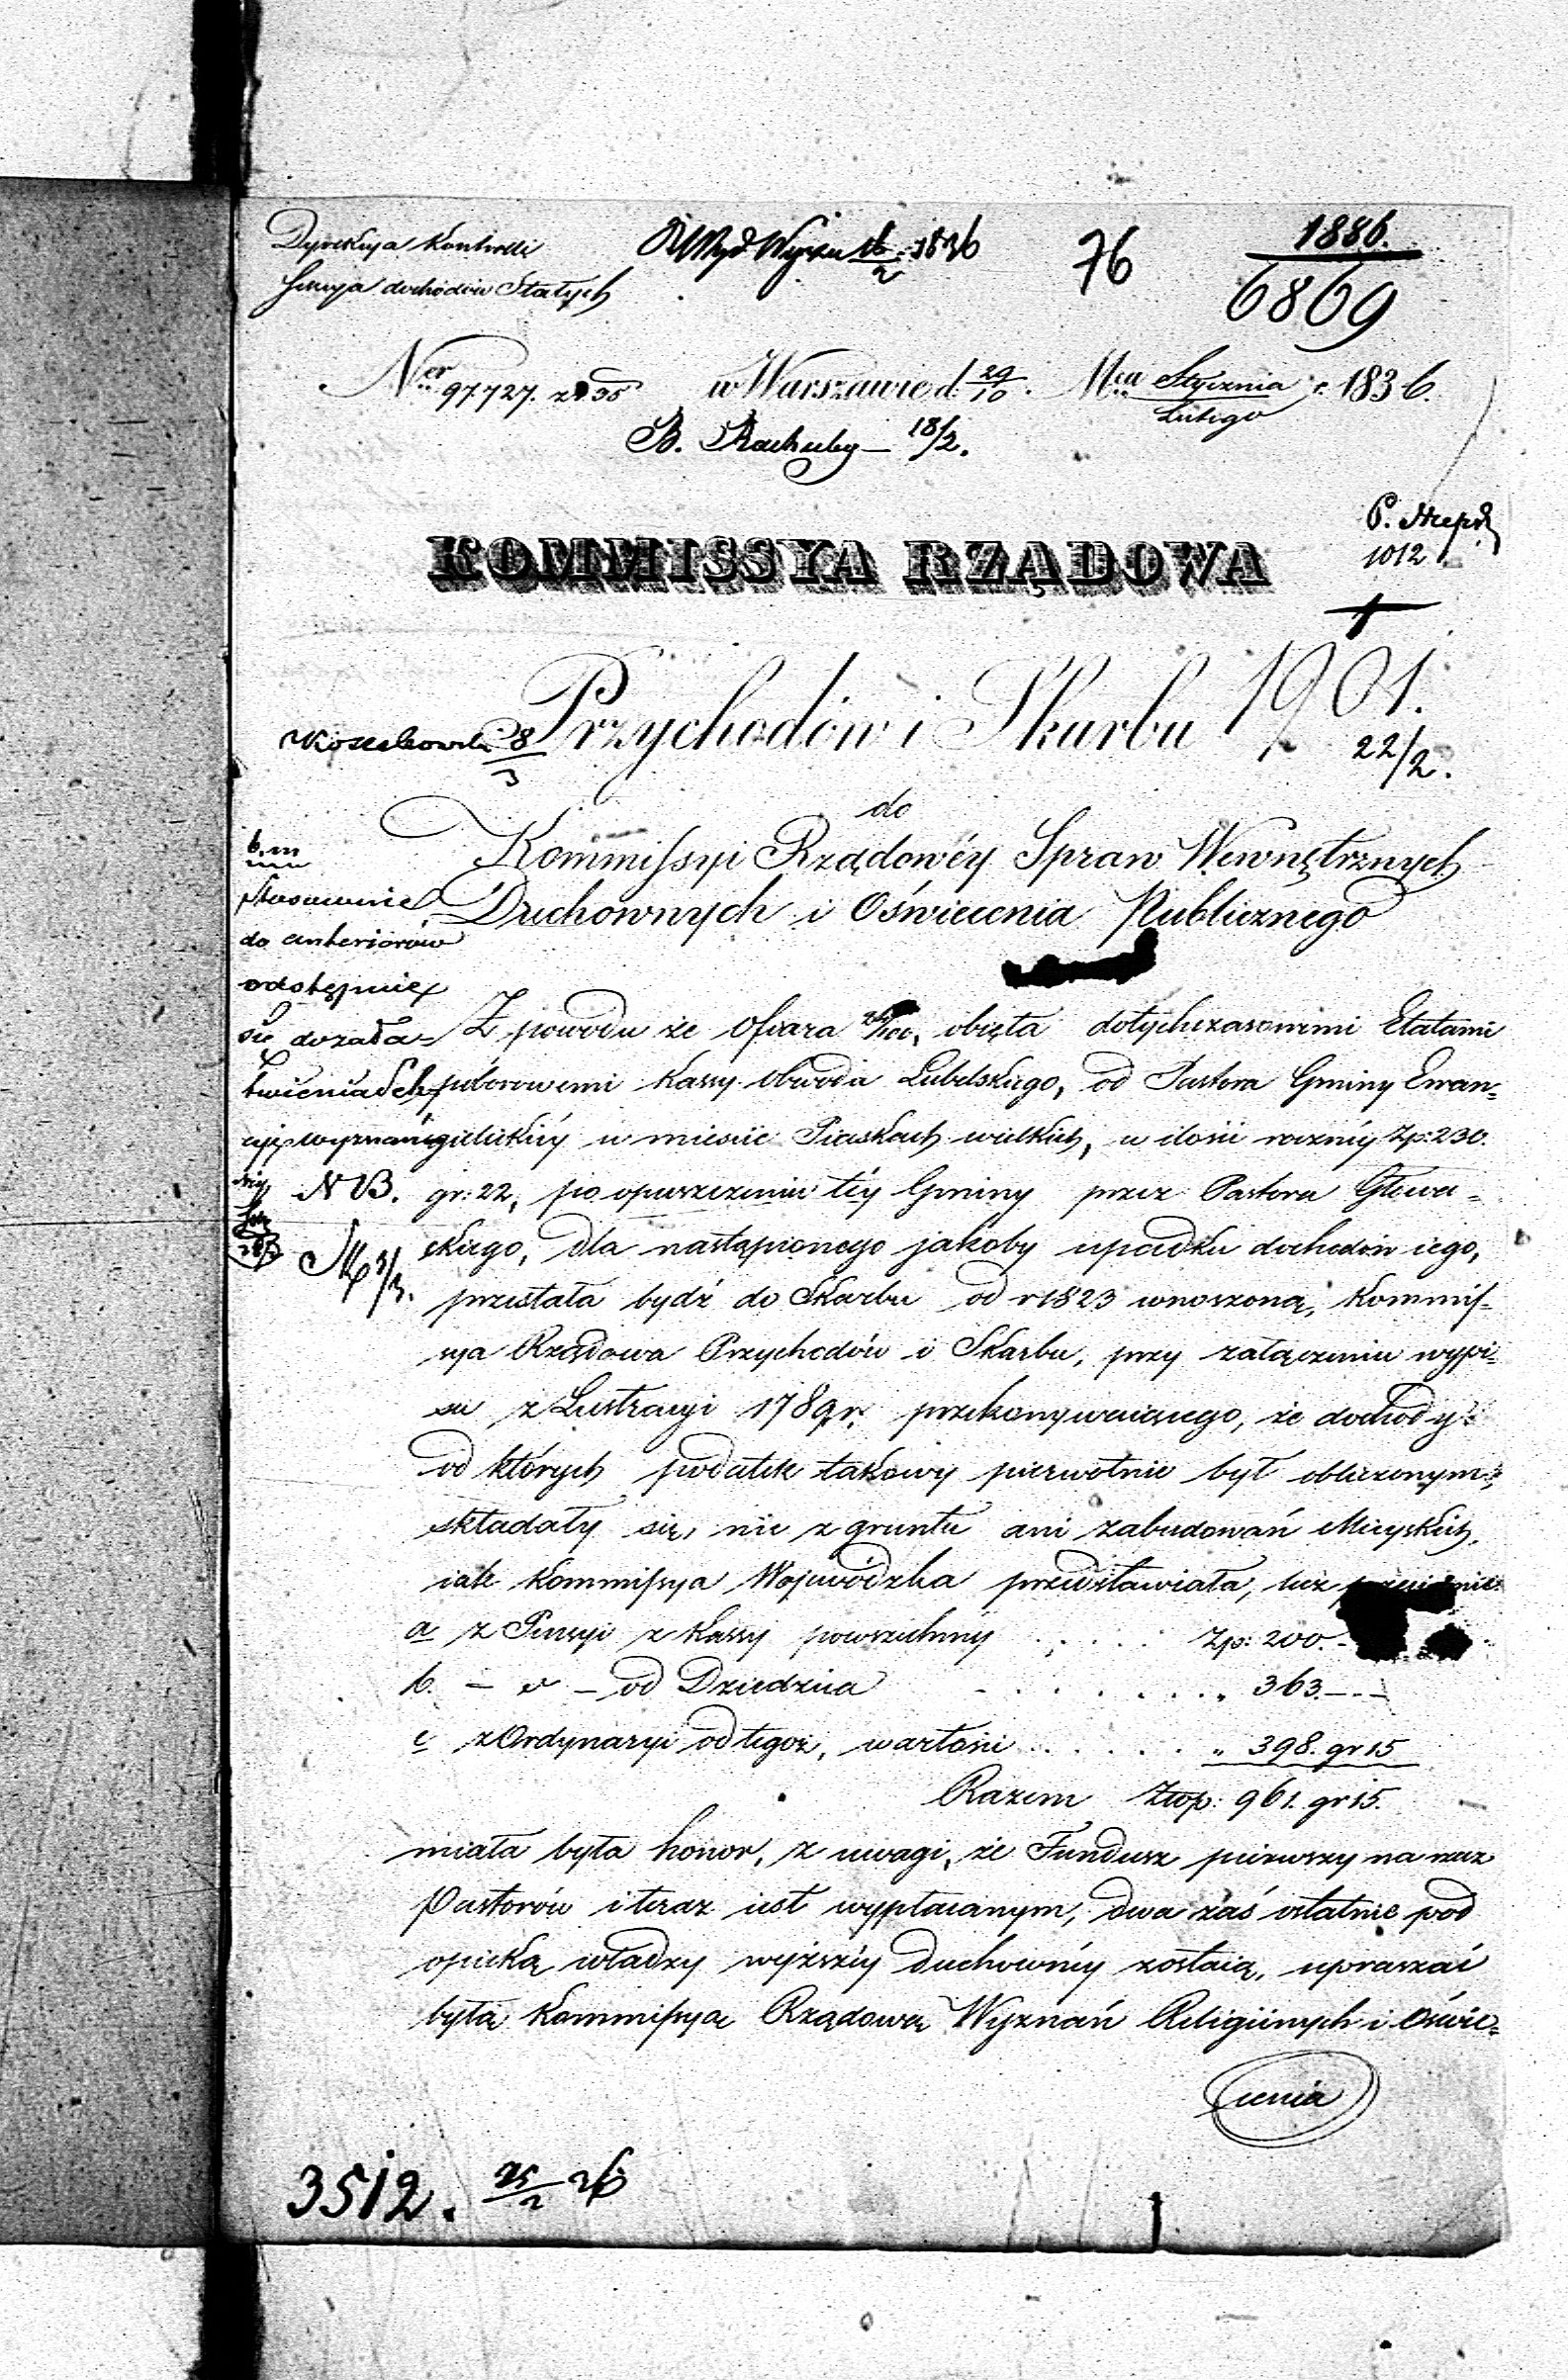 Dyrekcya Kontrolli
Sekcya dochodów Stałych
1836
76
1886.
6869
Ner 97727. z r 35 w Warszawie d. 29/10. Mca Stycznia/Lutego r. 1836.
B. Rachuby — 18/2.
1012
KOMMISSYA RZĄDOWA
Przychodów i Skarbu
1901.
22/2.
8/3
do
Kommissyi Rządowéy Spraw Wewnętrznych
Duchownych i Oświecenia Publicznego
Stosownie
do anteriorów
odstępuie
się do zała=
twienia Sek
cyi wyznań
NB.
3/3.
Z powodu że Ofiara /100, obięta dotychczasowemi Etatami
poborowemi Kassy Obwodu Lubelskiego, od Pastora Gminy Ewan=
gielickiéy w mieście Piaskach wielkich, w ilości rocznéy Zp: 230.
gr: 22, po opuszczeniu téy Gminy przez Pastora Głowa=
ckiego, dla nastąpionego jakoby upadku dochodów iego,
przestała bydź do Skarbu od r 1823 wnoszoną, Kommis=
sya Rządowa Przychodów i Skarbu, przy załączeniu wypi=
su z Lustracyi 1789 r. przekonywaiącego, że dochody
od których podatek takowy pierwotnie był obliczonym,
składały się, nie z gruntu ani zabudowań Mieyskich,
iak Kommissya Wojewódzka przedstawiała, lecz
a z Pensyi z Kassy powszechnéy . . . . . Zp: 200. -
b. — " — od Dziedzica . . . . . . " 363. - - -
c z Ordynaryi od tegoż, wartości . . . . . " 398. gr 15
Razem Złp: 961. gr 15.
miała była honor, z uwagi, że Fundusz pierwszy na rzecz
Pastorów i teraz iest wypłacanym, dwa zaś ostatnie pod
opieką władzy wyższéy duchownéy zostaią, upraszać
byłą Kommissyą Rządową Wyznań Religiinych i Oświe=
cenia
3512. 25/2 36